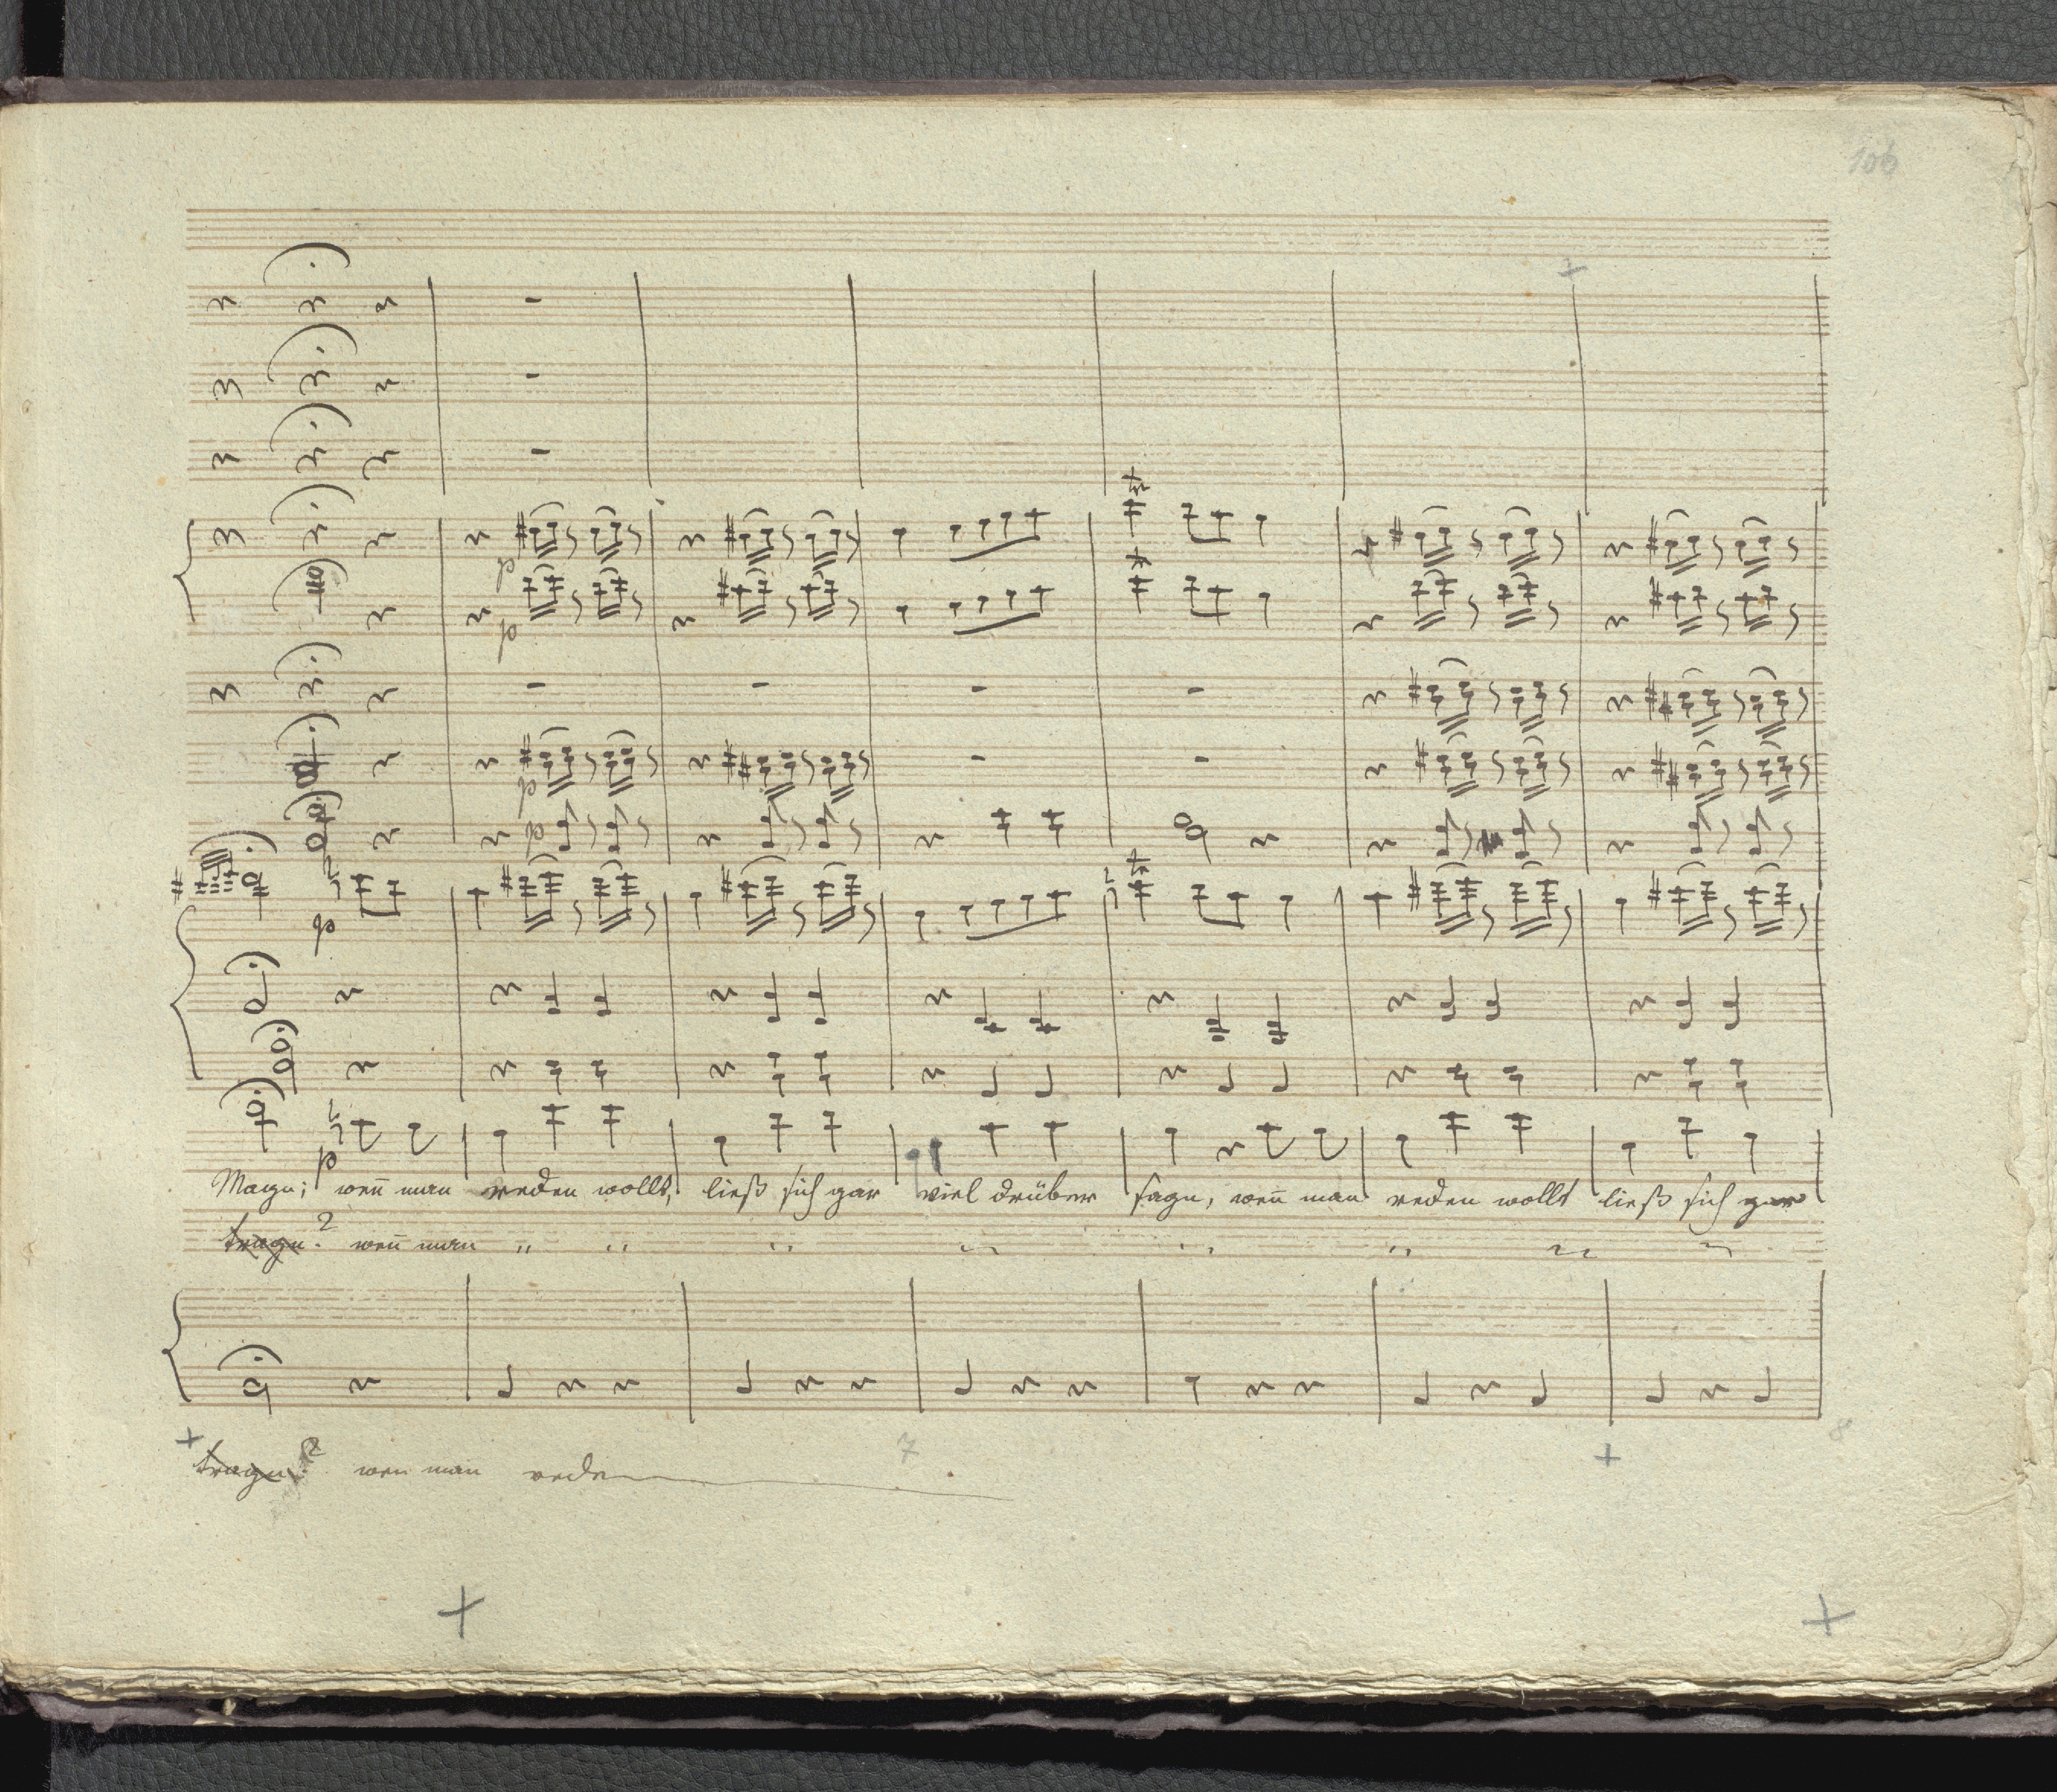 106
p
p
p
p
p
p
Magn; weñ man reden wollt, ließ sich gar viel drüber sagn, weñ man reden wollt ließ sich gar
tragn? weñ man " " " " " " " "
7 8
tragn? wen man reden